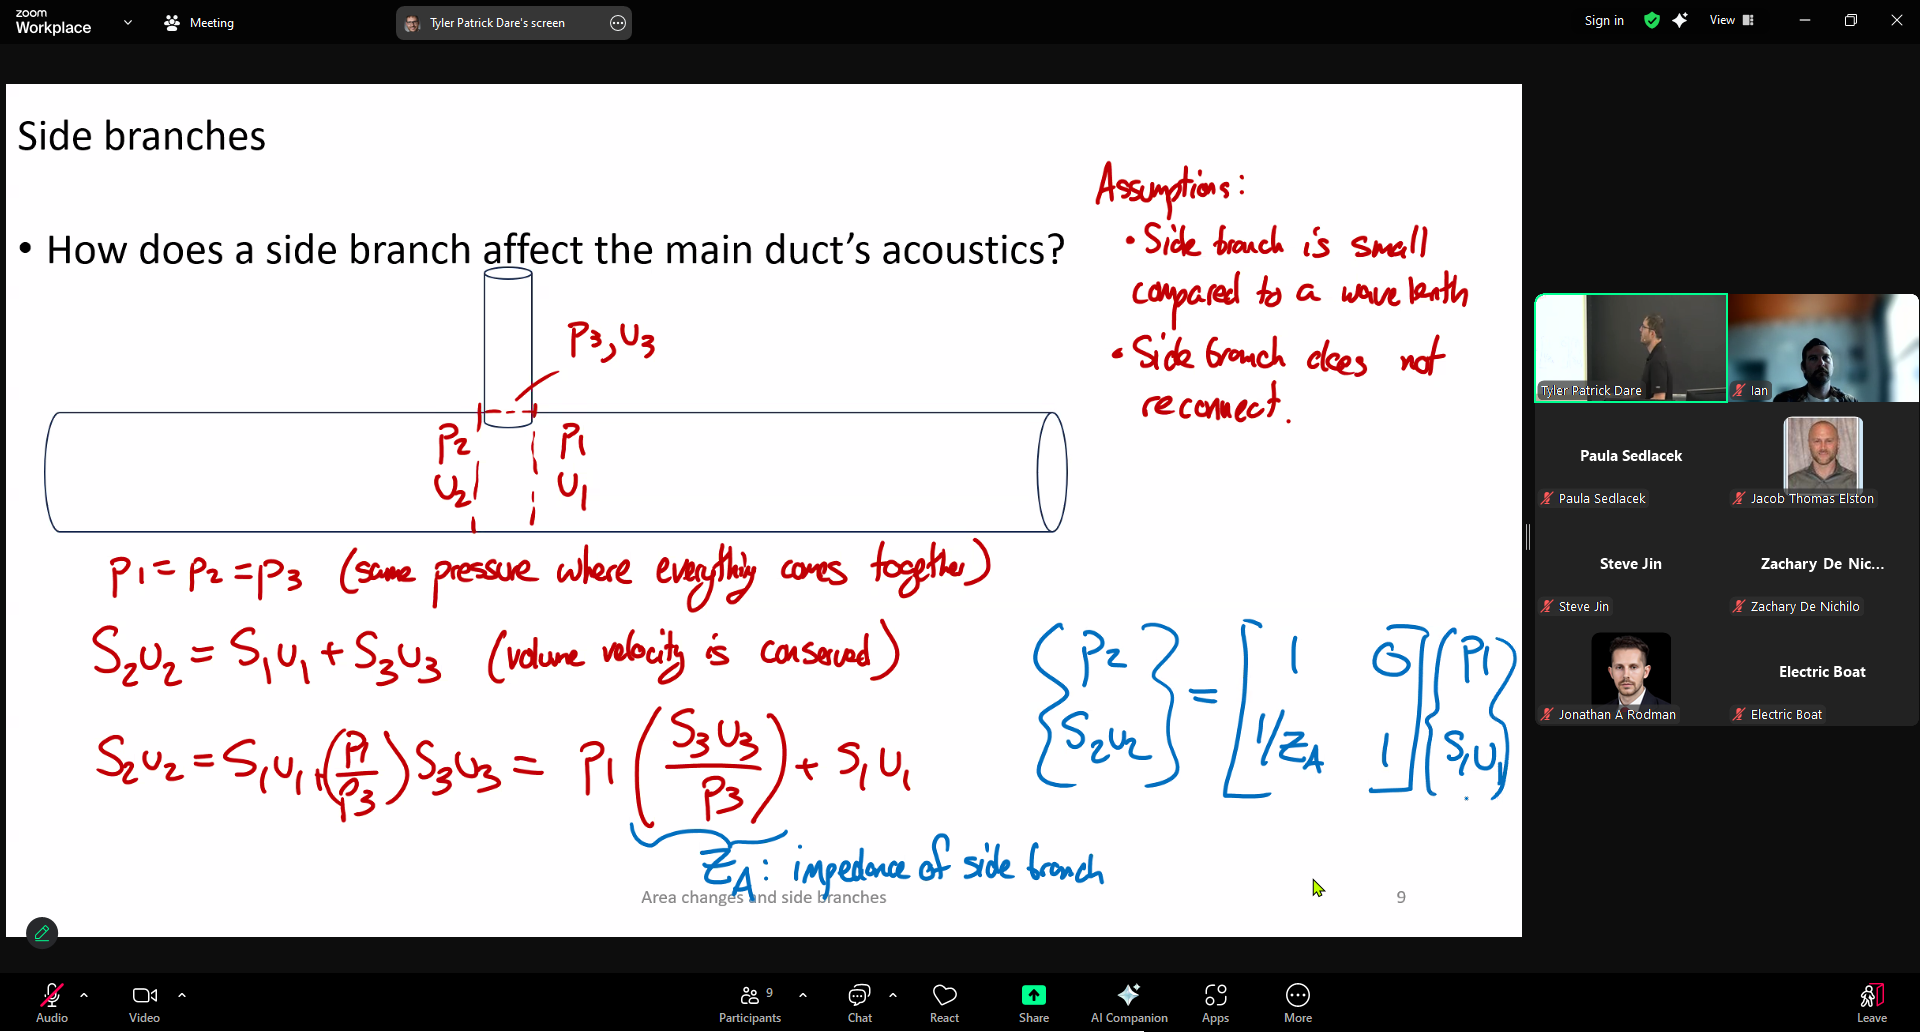 zoom
Workplace
Meeting
Tyler Patrick Dare's screen
Sign in
View
Side branches
• How does a side branch affect the main duct's acoustics?
Assumptions:
• Side branch is small
compared to a wavelenth
• Side branch does not
reconnect.
P3, U3
P2
U2
P1
U1
P1 = P2 = P3 (same pressure where everything comes together)
S2U2 = S1U1 + S3U3 (volume velocity is conserved)
S2U2 = S1U1 + (P1/P3) S3U3 = P1 (S3U3/P3) + S1U1
ZA: impedance of side branch
{P2 S2U2} = [1 0 1/ZA 1] {P1 S1U1}
Area changes and side branches
9
Tyler Patrick Dare
Ian
Paula Sedlacek
Paula Sedlacek
Jacob Thomas Elston
Steve Jin
Steve Jin
Zachary De Nic...
Zachary De Nichilo
Jonathan A Rodman
Electric Boat
Electric Boat
Audio
Video
Participants
9
Chat
React
Share
AI Companion
Apps
More
Leave